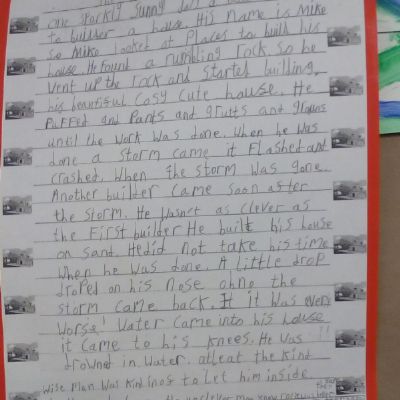 one sparkly sunny
to builder a house. His name is Mike
so Mike looked at places to built his
house. He found a rumbling rock. so he
went up the rock and started building.
his beautiful cosy cute house. He
puffed and pants and grutts and grouns
until the work was done. when he was
done a storm came it flashed and
crashed. when the storm was gone.
Another builter came soon after
the storm. He wasnet as clever as
the first builder He built his house
on sand. He did not take his time
when he was done. A little drop
droped on his nose ohno the
storm came back. It it was even
worse! Water came into his house
it came to his knees. He was
drowned in water. atleat the kind
wise man was kind to let him inside